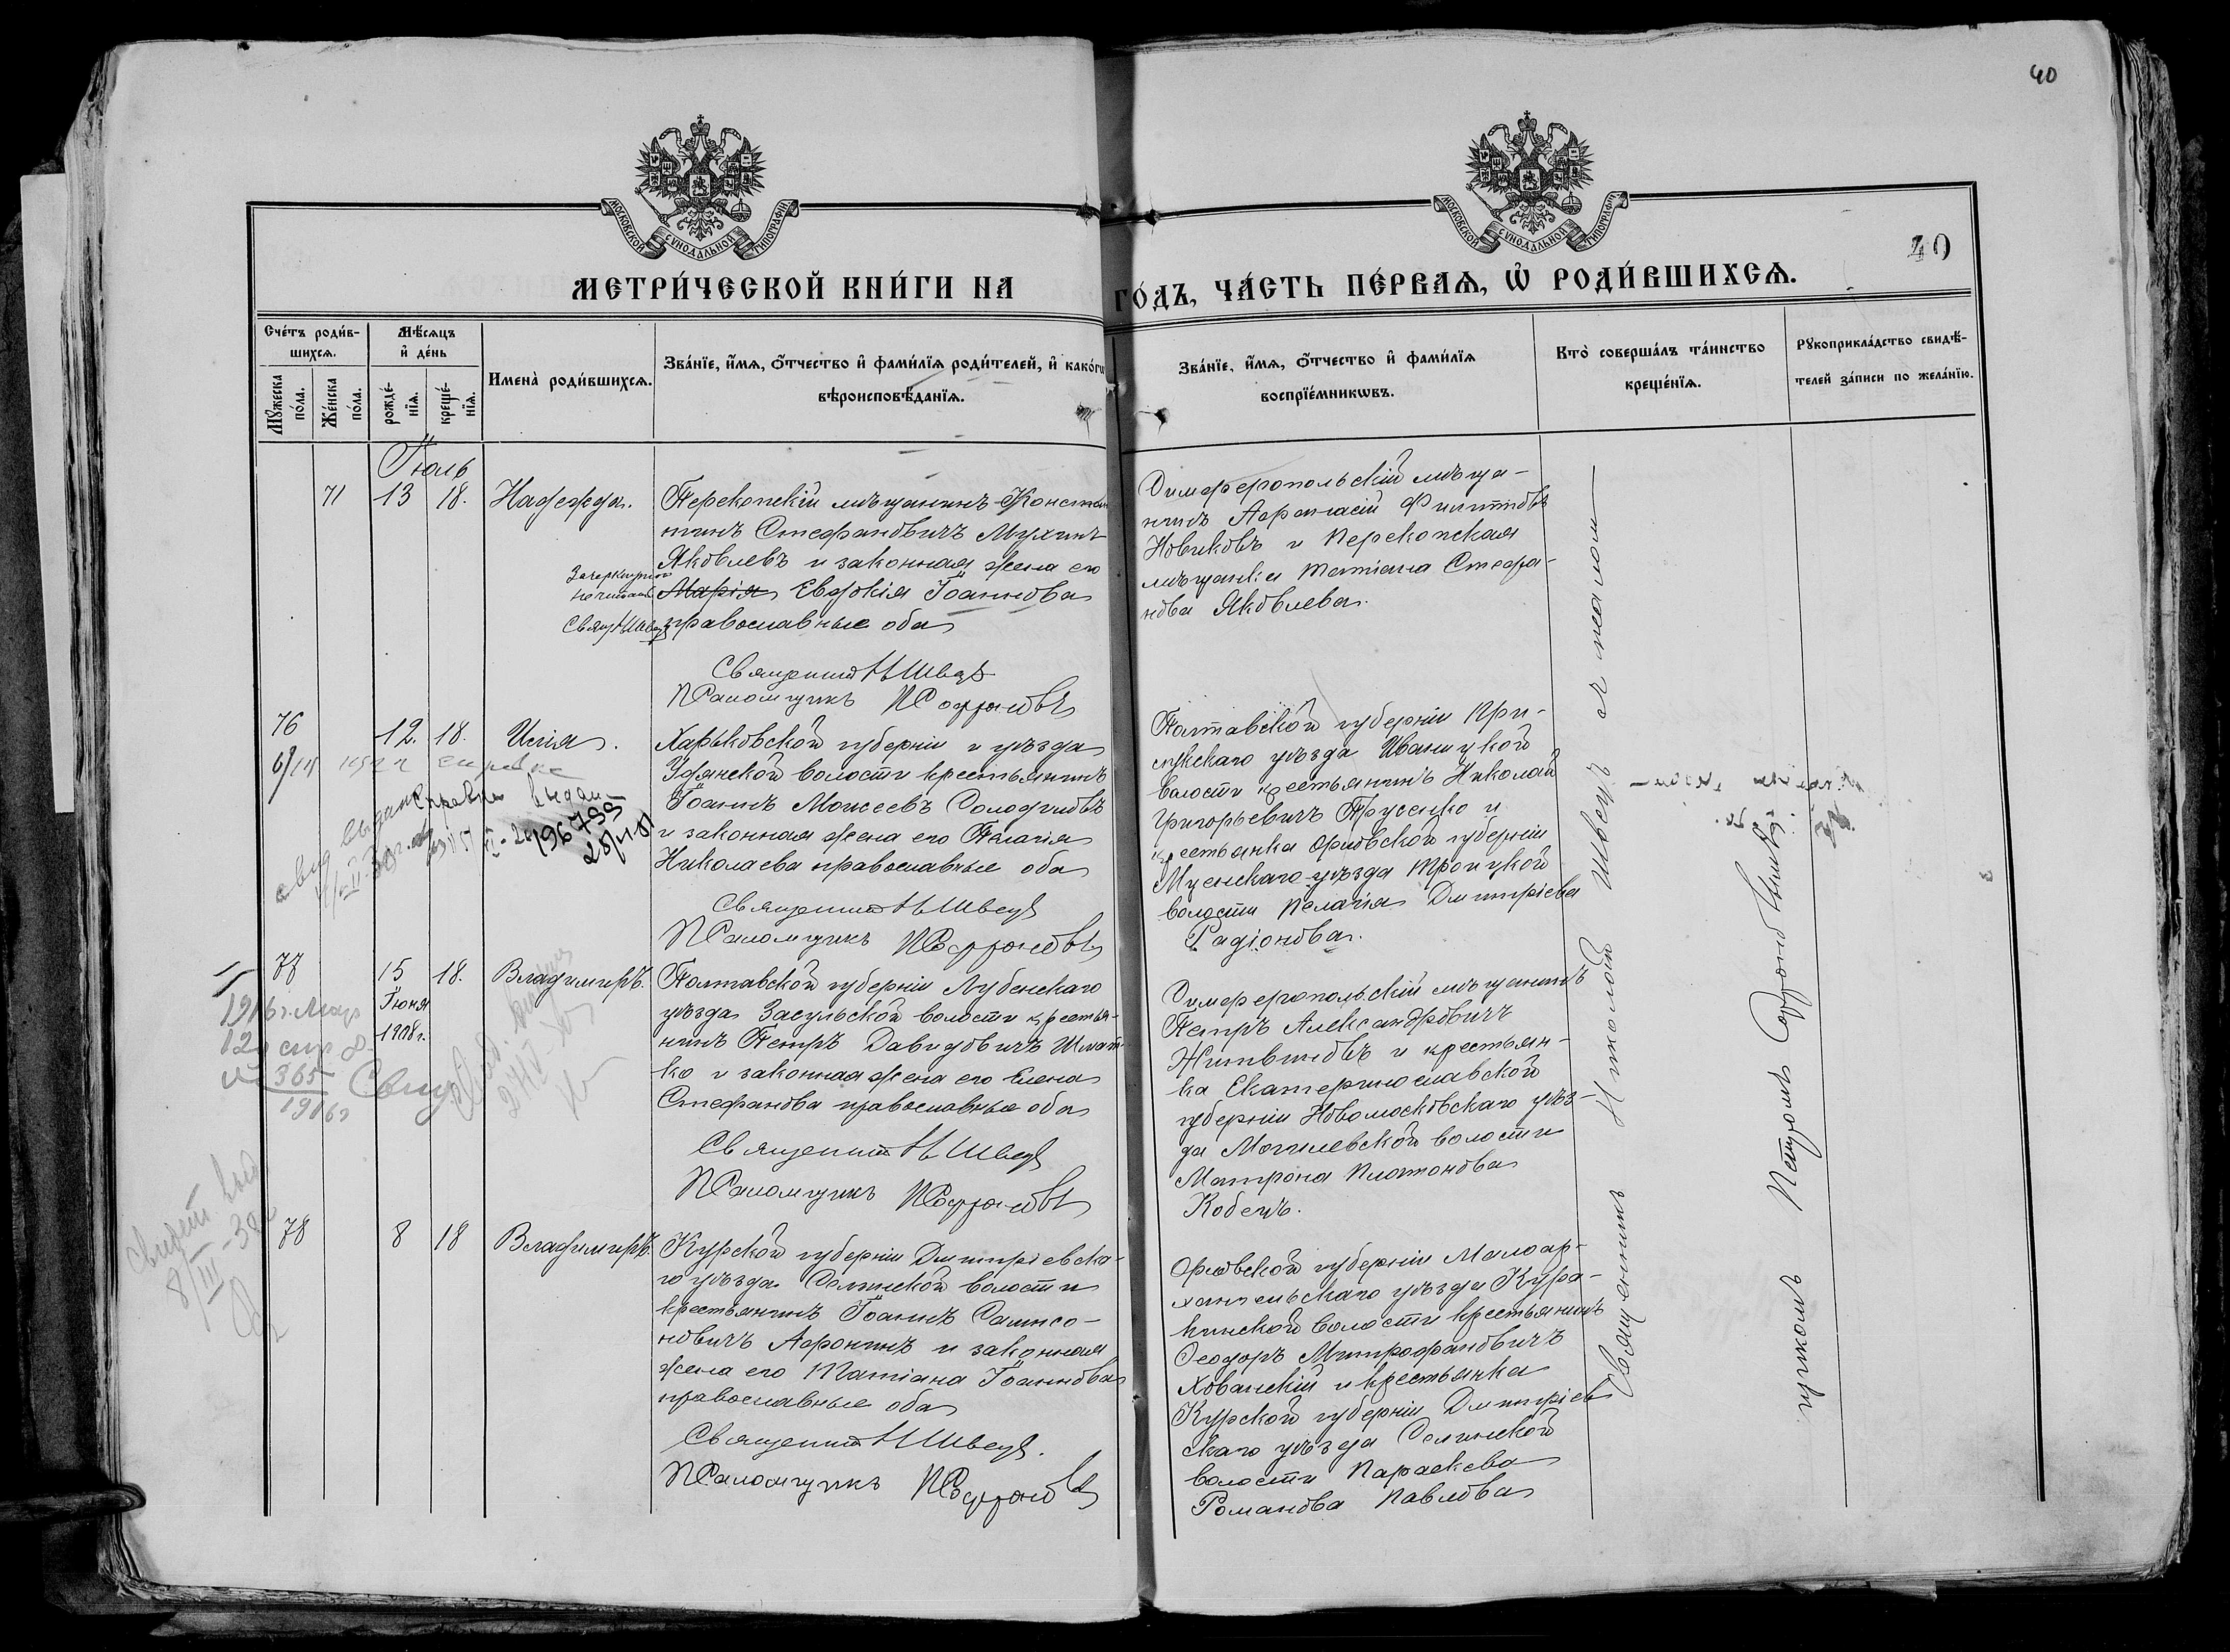 40
МОСКОВСКОЙ СѴНОДАЛЬНОЙ ТИПОГРАФІИ
МОСКОВСКОЙ СѴНОДАЛЬНОЙ ТИПОГРАФІИ
40
МЕТРИ́ЧЕСКОЙ КНИ́ГИ НА
ГО́ДЪ, ЧА́СТЬ ПЕ́РВАѦ, Ѡ҆ РОДИ́ВШИХСѦ.
Сче́тъ роди́в-
шихсѧ.
Мѣ́сѧцъ
и҆ де́нь
Мꙋ́жеска
по́ла.
Же́нска
по́ла.
рожде́-
нїѧ.
креще́-
нїѧ.
Имена̀ роди́вшихсѧ.
Зва́нїе, и҆́мѧ, ѻ҆́тчество и҆ фами́лїѧ роди́телей, и҆ како́гѡ
вѣроисповѣ́данїѧ.
Зва́нїе, и҆́мѧ, ѻ҆́тчество и҆ фами́лїѧ
воспрїе́мникѡвъ.
Кто̀ соверша́лъ та́инство
креще́нїѧ.
Рꙋкоприкла́дство свидѣ́-
телей за́писи по жела́нїю.
Іюль
71 13 18. Надежда.
Перекопскій мѣщанинъ Констан
тинъ Стефановичъ Мухинъ
Яковлевъ и законная жена его
Марія Евдокія Іоаннова
православные оба
Зачеркнутое
не читать
Свящ. Н Швецъ
Священник Н Швецъ
Псаломщикъ П Софроновъ
Симферопольскій мѣща-
нинъ Афанасій Филипповъ
Новиковъ и Перекопская
мѣщанка Татіана Стефа-
нова Яковлева.
76 12. 18. Илія.
Харьковской губерніи и уѣзда
Удянской волости крестьянинъ
Іоаннъ Моисеевъ Солодиловъ
и законная жена его Пелагія
Николаева православные оба
Священник Н Швецъ
Псаломщикъ П Софроновъ
справка
Справка выдана
796799
28/
Полтавской губерніи При-
лукскаго уѣзда Иваницкой
волости крестьянинъ Николай
Григорьевичъ Прусенко и
крестьянка Орловской губерніи
Мценскаго уѣзда Троицкой
волости Пелагія Димитріева
Радіонова.
77 15 18. Владимиръ.
Іюня
1908 г.
Полтавской губерніи Лубенскаго
уѣзда Засульской волости крестья-
нинъ Петръ Давидовичъ Шмат-
ко и законная жена его Елена
Стефанова православные оба
Священник Н Швецъ
Псаломщикъ П Софроновъ
1916 г. Мар
12
365
1916 г
Свид.
Симферопольскій мѣщанинъ
Петръ Александровичъ
Житвиновъ и крестьян-
ка Екатеринославской
губерніи Новомосковскаго уѣз-
да Могилевской волости
Матрона Платонова
Кобецъ.
78 8 18 Владимиръ.
Курской губерніи Димитріевска-
го уѣзда Селинской волости
крестьянинъ Іоаннъ Сампсо-
новичъ Афонинъ и законная
жена его Татіана Іоаннова
православные оба
Священник Н Швецъ.
Псаломщикъ П Софроновъ
8/III-38
Орловской губерніи Малоар-
хангельскаго уѣзда Кура-
кинской волости крестьянинъ
Ѳеодоръ Митрофановичъ
Хованскій и крестьянка
Курской губерніи Димитріев
скаго уѣзда Селинской
волости Параскева
Романова Павлова
Священникъ Николай Швецъ съ псалом-
щикомъ Петромъ Софроновымъ